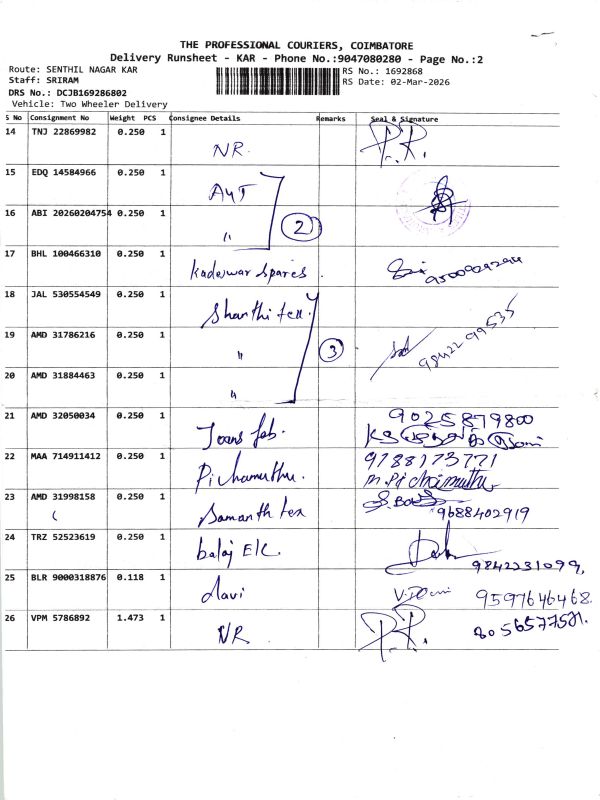 THE PROFESSIONAL COURIERS, COIMBATORE
Delivery Runsheet - KAR - Phone No.:9047080280 - Page No.:2
Route: SENTHIL NAGAR KAR RS No.: 1692868
Staff: SRIRAM RS Date: 02-Mar-2026
DRS No.: DCJB169286802
Vehicle: Two Wheeler Delivery
S No Consignment No Weight PCS Consignee Details Remarks Seal & Signature
14 TNJ 22869982 0.250 1 NR P.R.
15 EDQ 14584966 0.250 1
16 ABI 20260204754 0.250 1 " 2
17 BHL 100466310 0.250 1 Kadeswar spares.
18 JAL 530554549 0.250 1 Shanthi tex.
19 AMD 31786216 0.250 1 " 3 9842299535
20 AMD 31884463 0.250 1 "
21 AMD 32050034 0.250 1 Jeans fab. 9025879800
22 MAA 714911412 0.250 1 Pichamuthu. 9788173771
M. Pichaimuthu
23 AMD 31998158 0.250 1 Samanth tex 9688402919
24 TRZ 52523619 0.250 1 balaj E/C. 9842231099,
25 BLR 9000318876 0.118 1 9597646468.
26 VPM 5786892 1.473 1 NR P.R.